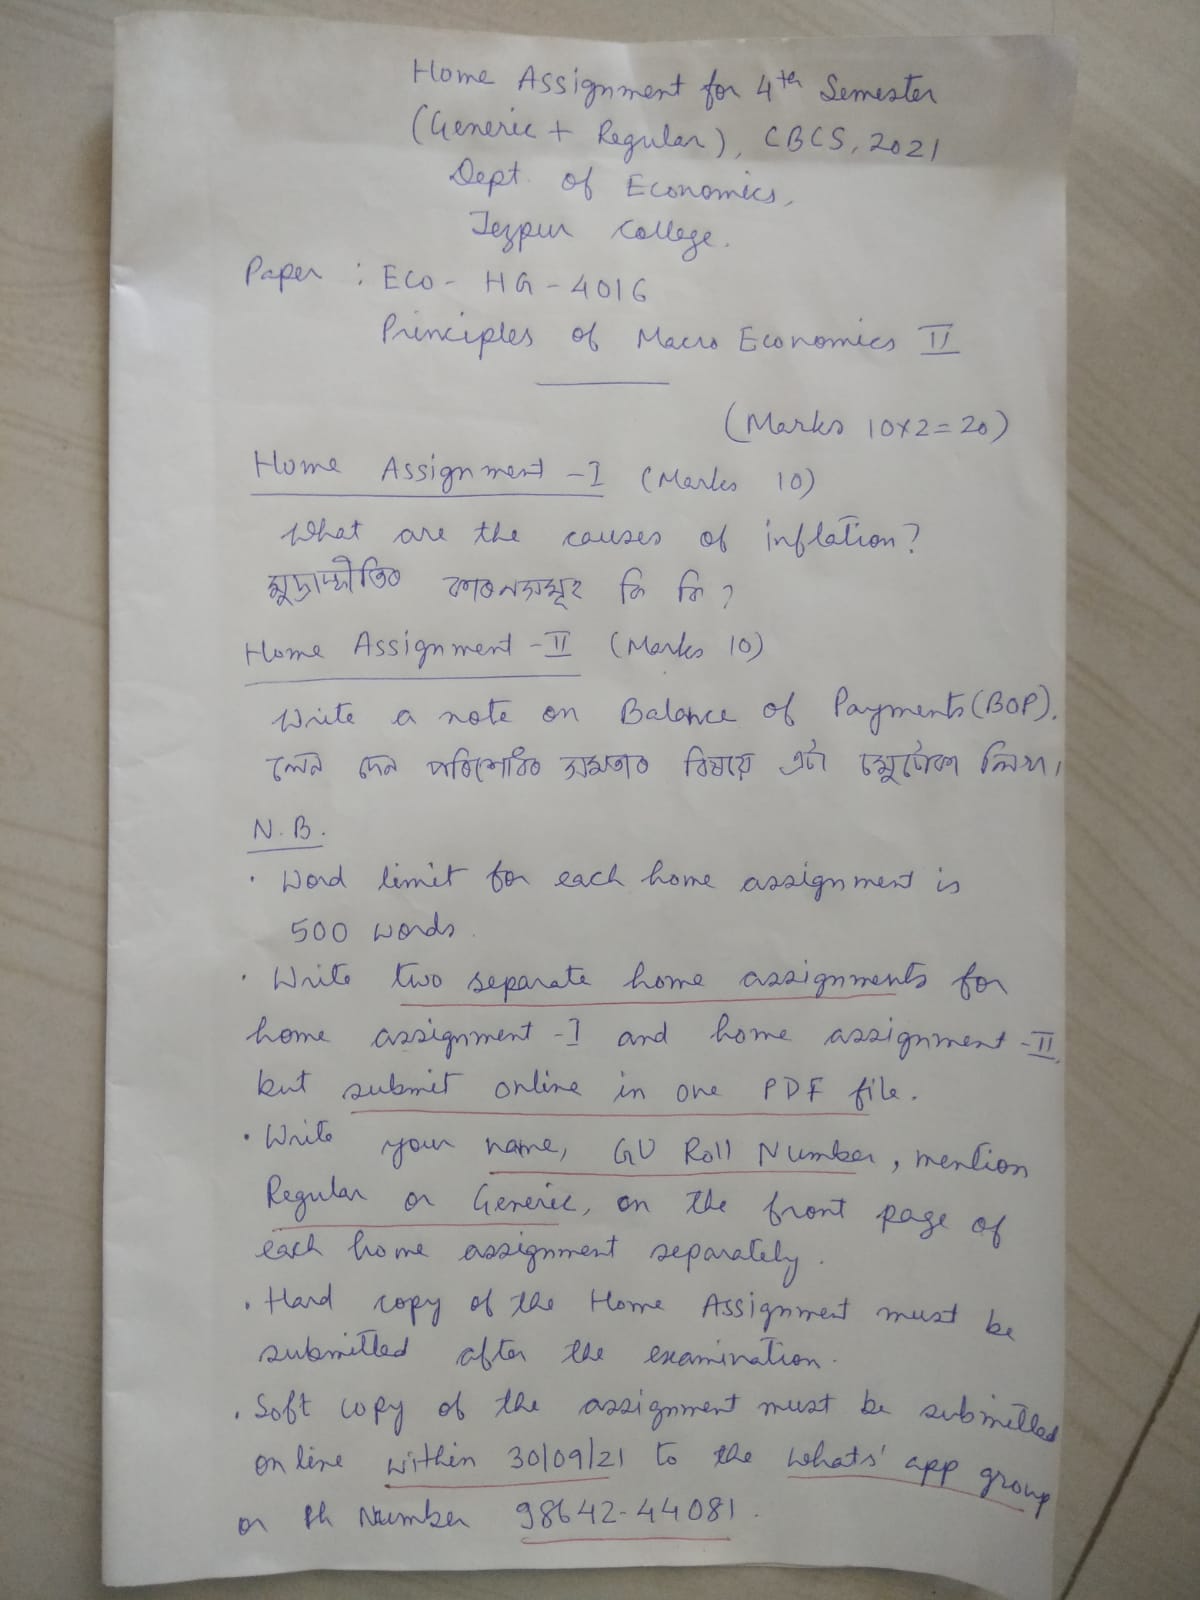 Home Assignment for 4th Semester
(Generic + Regular), CBCS, 2021
Dept. of Economics,
Tezpur College.
Paper : Eco - HG - 4016
Principles of Macro Economics II
(Marks 10x2=20)
Home Assignment - I (Marks 10)
What are the causes of inflation?
মুদ্ৰাস্ফীতিৰ কাৰনসমূহ কি কি ?
Home Assignment - II (Marks 10)
Write a note on Balance of Payments (BOP).
লেন দেন পৰিশোধৰ সমতাৰ বিষয়ে এটা চমুটোকা লিখা।
N.B.
· Word limit for each home assignment is
500 words.
· Write two separate home assignments for
home assignment - I and home assignment - II,
but submit online in one PDF file.
· Write your name, GU Roll Number, mention
Regular or Generic, on the front page of
each home assignment separately.
· Hard copy of the Home Assignment must be
submitted after the examination.
· Soft copy of the assignment must be submitted
on line within 30/09/21 to the whats' app group
or Ph Number 98642-44081.